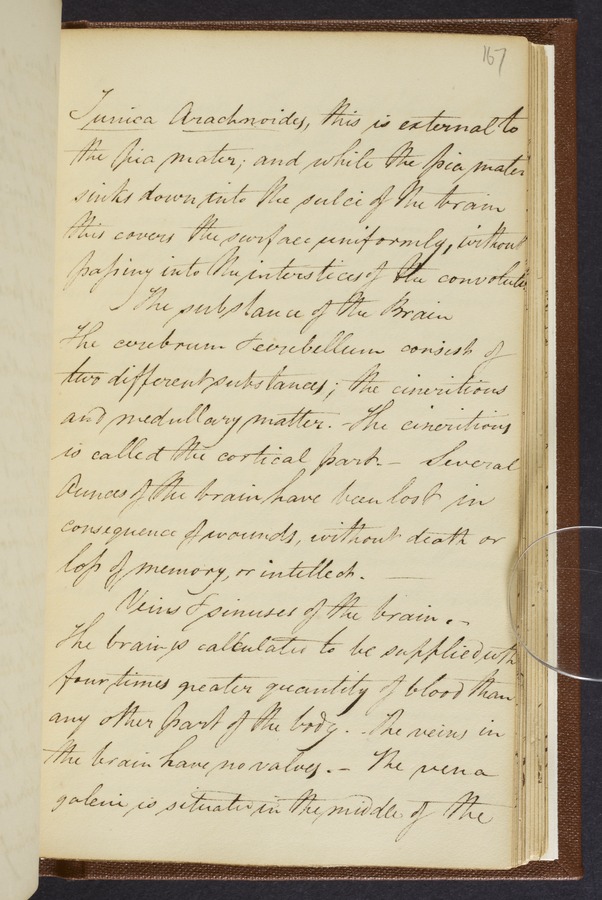 167
Tunica Arachnoides, this is external to
the pia mater; and while the pia mater
sinks down into the sulci of the brain
this covers the surface uniformly, without
passing into the interstices of the convolutio
The substance of the Brain
The cerebrum & cerebellum consist of
two different substances; the cineritious
and medullary matter. - The cineritious
is called the cortical part. - Several
Ounces of the brain have been lost in
consequence of wounds, without death or
loss of memory, or intellect. —
Veins & sinuses of the brain. -
The brain is calculated to be supplied with
four times greater quantity of blood than
any other part of the body. - The veins in
the brain have no valves. - The vena
galeni is situated in the middle of the